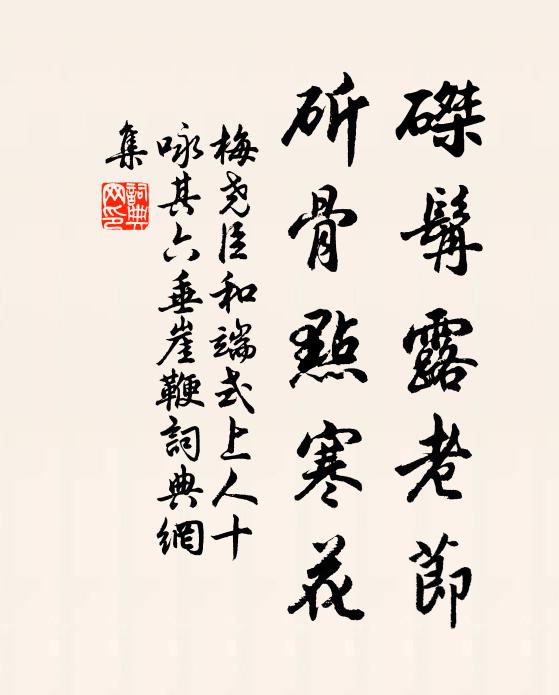 磔髯露老節
斫骨點寒花
梅堯臣和端式上人十
咏其六垂崖鞭詞典網
集
詞典
网印